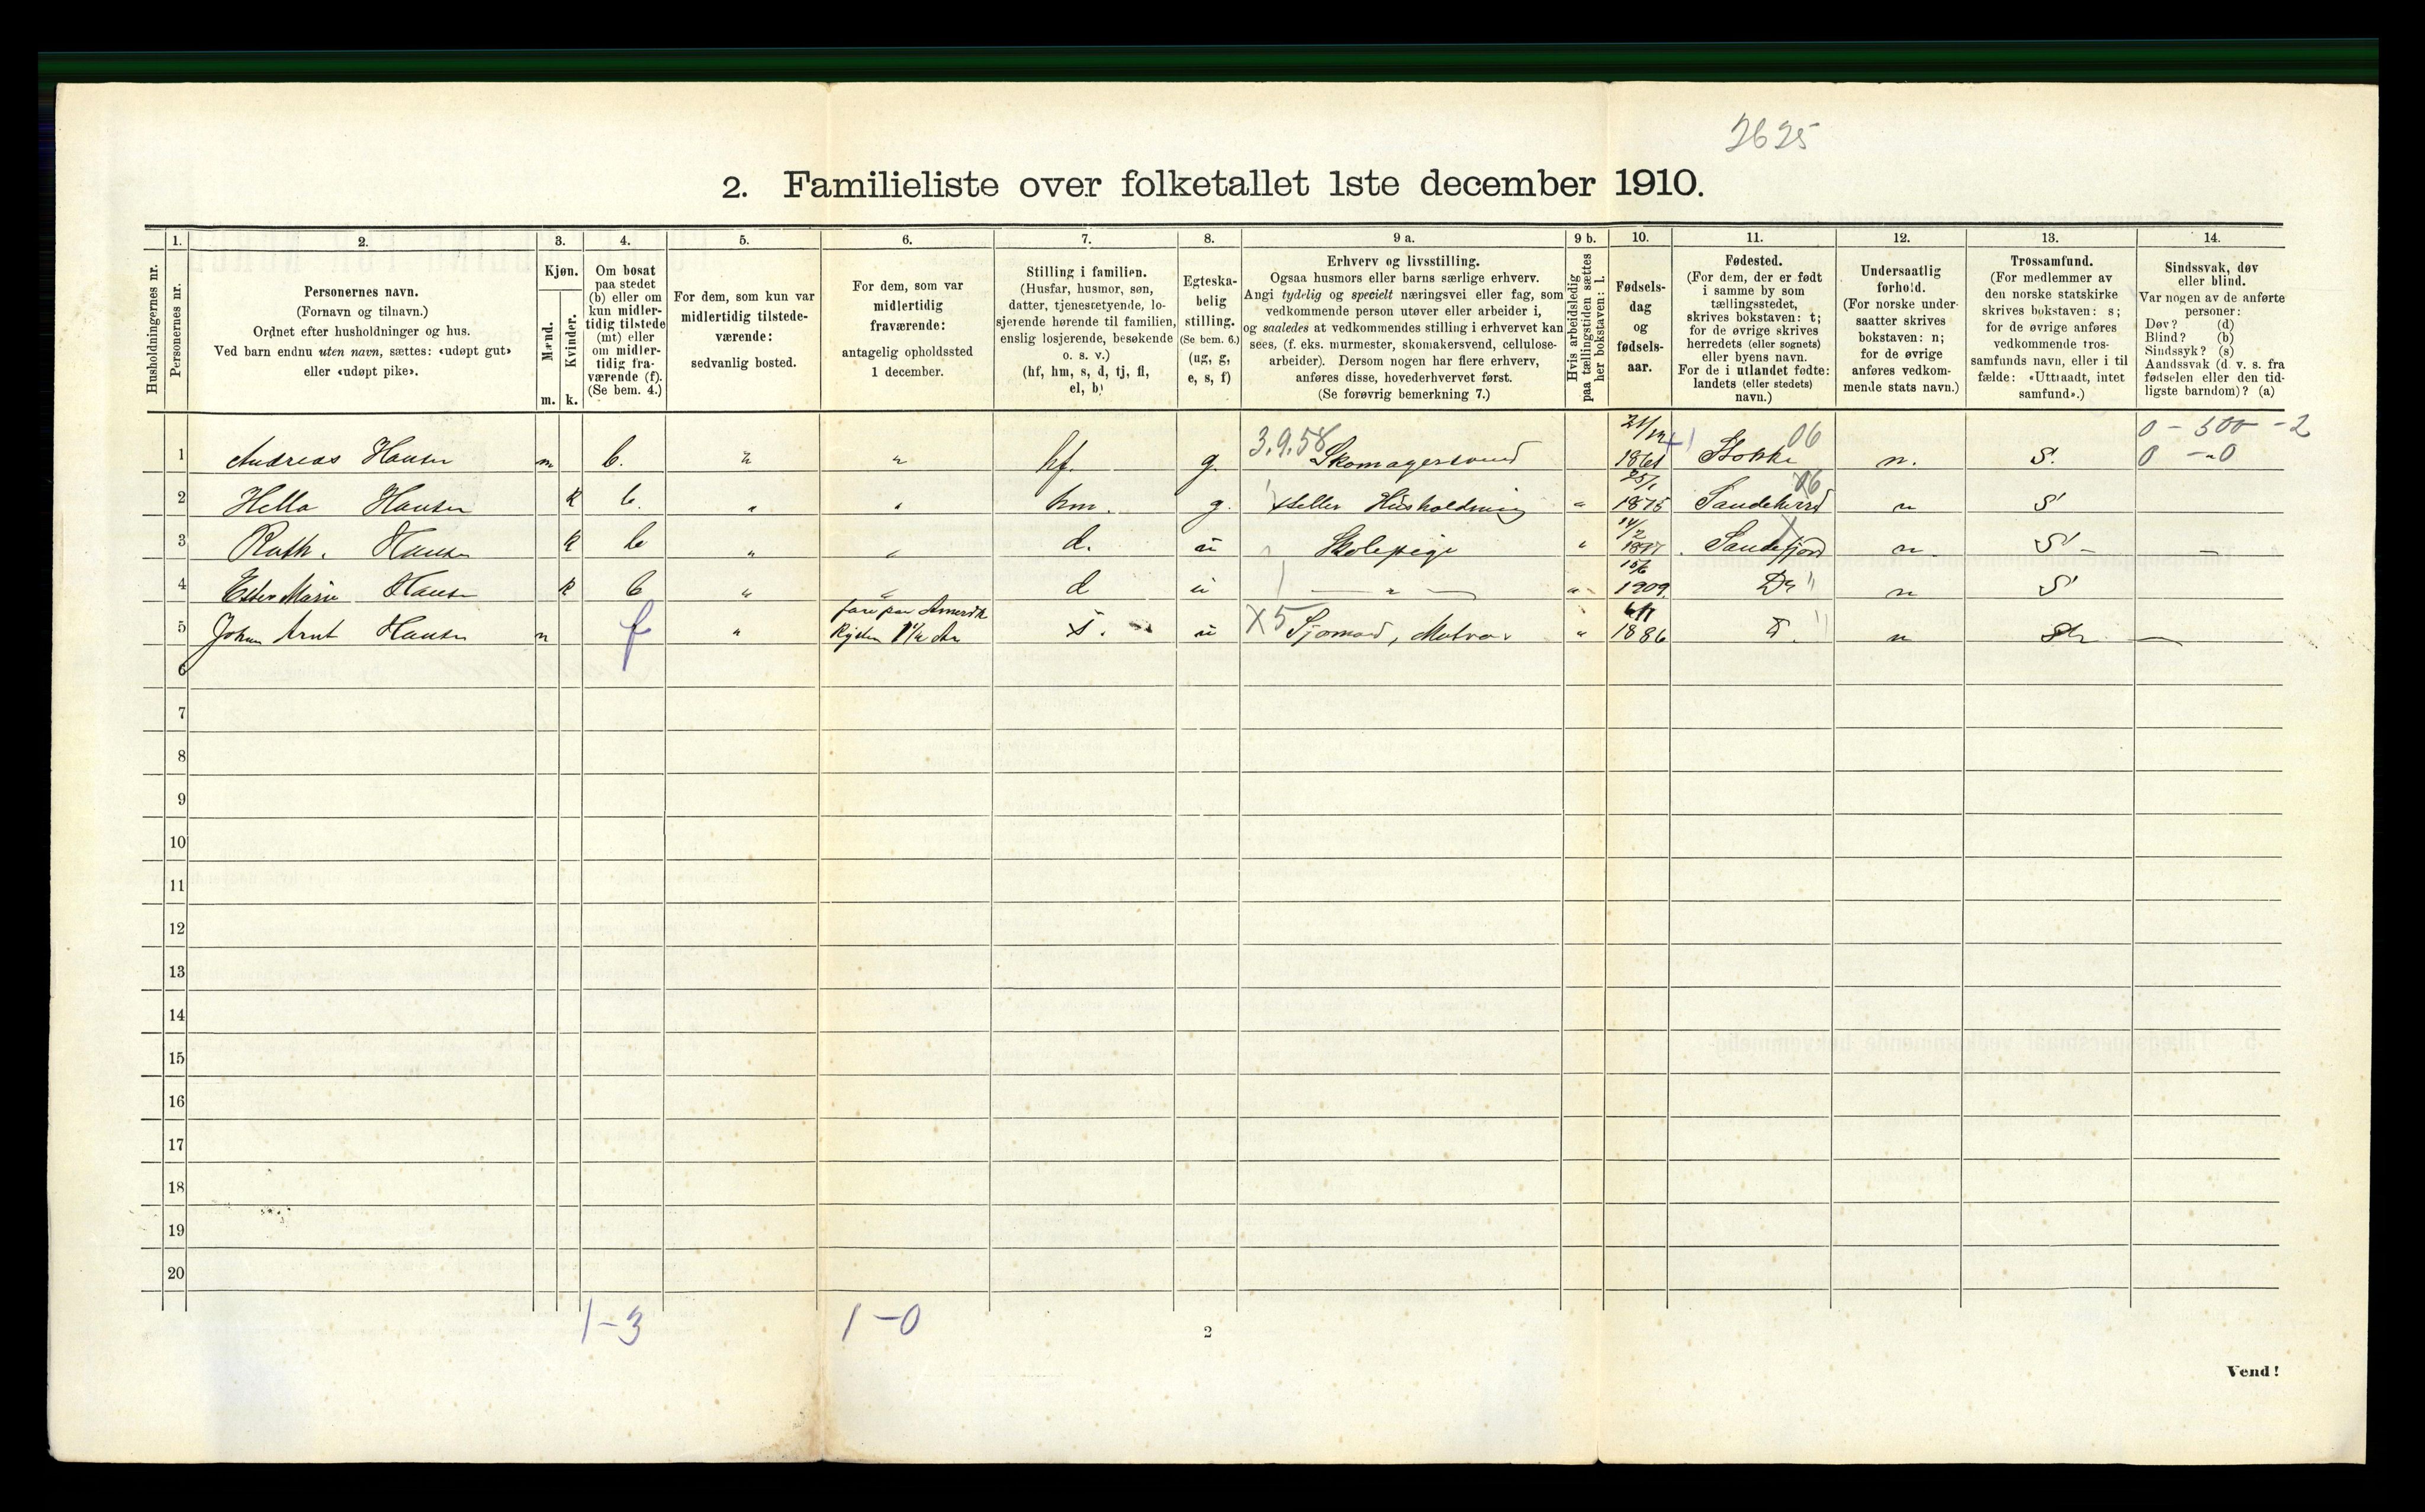 2625
2. Familieliste over folketallet 1ste december 1910.
1. 2. 3. 4. 5. 6. 7. 8. 9 a. 9 b. 10. 11. 12. 13. 14.
Husholdningernes nr.
Personernes nr.
Personernes navn.
(Fornavn og tilnavn.)
Ordnet efter husholdninger og hus.
Ved barn endnu uten navn, sættes: «udøpt gut»
eller «udøpt pike».
Kjøn.
Mænd.
Kvinder.
m. k.
Om bosat
paa stedet
(b) eller om
kun midler-
tidig tilstede
(mt) eller
om midler-
tidig fra-
værende (f).
(Se bem. 4.)
For dem, som kun var
midlertidig tilstede-
værende:
sedvanlig bosted.
For dem, som var
midlertidig
fraværende:
antagelig opholdssted
1 december.
Stilling i familien.
(Husfar, husmor, søn,
datter, tjenestetyende, lo-
sjerende hørende til familien,
enslig losjerende, besøkende
o. s. v.)
(hf, hm, s, d, tj, fl,
el, b)
Egteska-
belig
stilling.
(Se bem. 6.)
(ug, g,
e, s, f)
Erhverv og livsstilling.
Ogsaa husmors eller barns særlige erhverv.
Angi tydelig og specielt næringsvei eller fag, som
vedkommende person utøver eller arbeider i,
og saaledes at vedkommendes stilling i erhvervet kan
sees, (f. eks. murmester, skomakersvend, cellulose-
arbeider). Dersom nogen har flere erhverv,
anføres disse, hovederhvervet først.
(Se forøvrig bemerkning 7.)
Hvis arbeidsledig
paa tællingstiden sættes
her bokstaven: l.
Fødsels-
dag
og
fødsels-
aar.
Fødested.
(For dem, der er født
i samme by som
tællingsstedet,
skrives bokstaven: t;
for de øvrige skrives
herredets (eller sognets)
eller byens navn.
For de i utlandet fødte:
landets (eller stedets)
navn.)
Undersaatlig
forhold.
(For norske under-
saatter skrives
bokstaven: n;
for de øvrige
anføres vedkom-
mende stats navn.)
Trossamfund.
(For medlemmer av
den norske statskirke
skrives bokstaven: s;
for de øvrige anføres
vedkommende tros-
samfunds navn, eller i til
fælde: «Uttraadt, intet
samfund».)
Sindssvak, døv
eller blind.
Var nogen av de anførte
personer:
Døv? (d)
Blind? (b)
Sindssyk? (s)
Aandssvak (d. v. s. fra
fødselen eller den tid-
ligste barndom)? (a)
3.9.58 21/12 06 0 - 500 - 2
1 Andreas Hansen m b. " " hf. g. Skomagersvend Stokke n. S. 0 - 0
25/1 06
2 Hella Hansen k b. " " hm. g. Steller Husholdning " 1875 Sandeherred n S
14/2
3 Ruth. Hansen k b " " d. u Skolepige " 1897 Sandefjord n S - -
15/6
4 Ester Marie Hansen k b " " d u - " - " 1909. Do n S
fare paa Amerik
5 Johan Arnt Hansen m f " 1½ Aar s. u X5 Sjømand, Matros " 1886 n —
6
7
8
9
10
11
12
13
14
15
16
17
18
19
20
1-3 1-0
2
Vend!